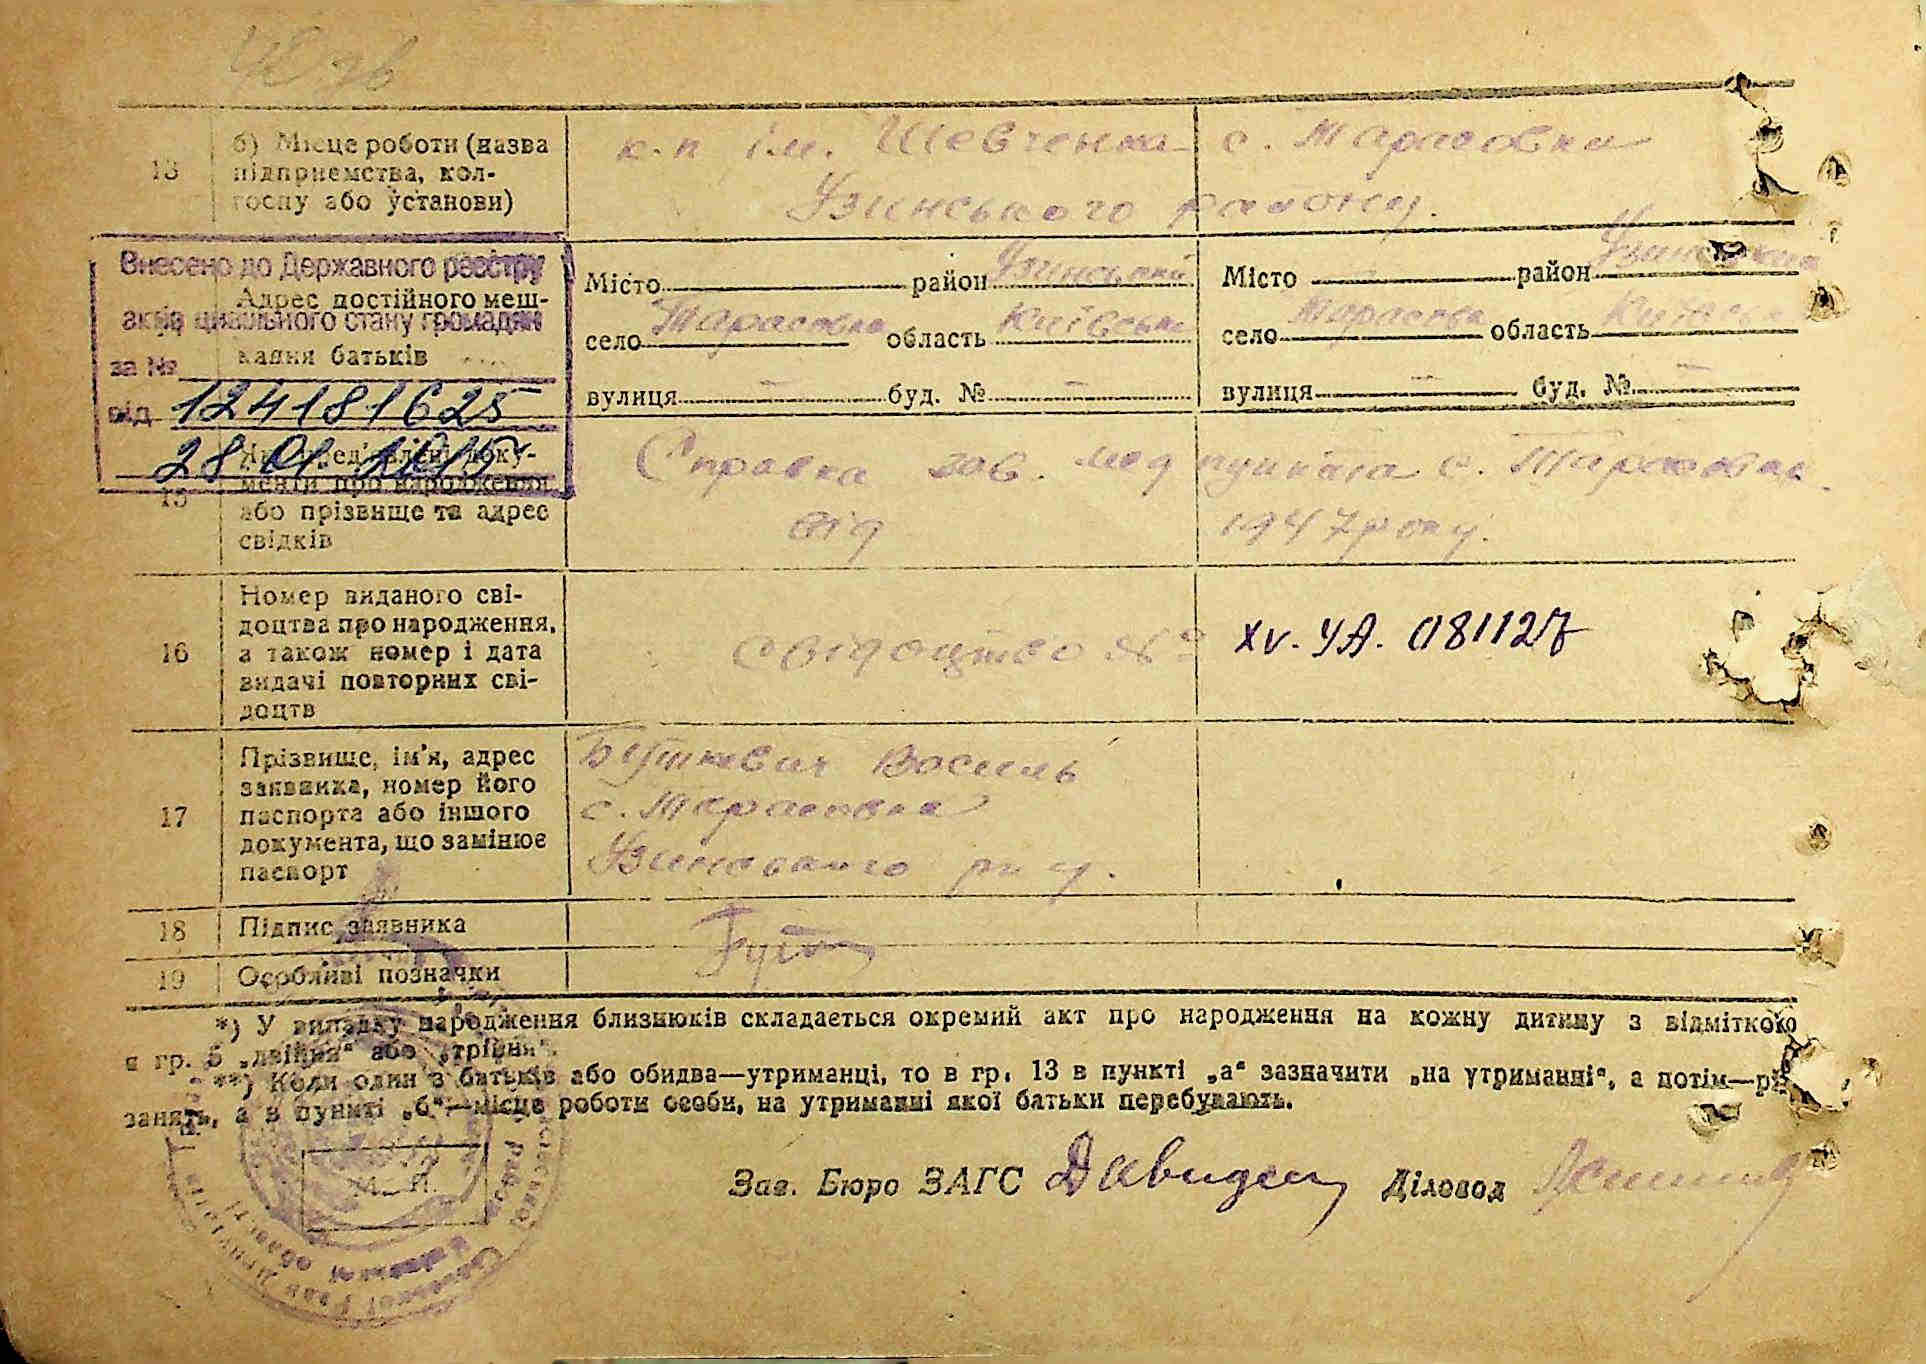 13 б) Місце роботи (назва
підприємства, кол-
госпу або установи)
к-п ім. Шевченка с. Тарасовки
Узинського району.
Внесено до Державного реєстру
актів цивільного стану громадян
за №
від 124181625
28.01.2015
Адрес постійного меш-
кання батьків
Місто район Узинський
село Тарасовка область Київська
вулиця — буд. № —
Місто район Узинський
село Тарасовка область Київська
вулиця — буд. № —
15 Які пред'явлені доку-
менти про народження
або прізвище та адрес
свідків
Справка зав. мед пункта с. Тарасовка
від 1947 року.
16 Номер виданого сві-
доцтва про народження,
а також номер і дата
видачі повторних сві-
доцтв
свідоцтво № XV-УА. 081127
17 Прізвище, ім'я, адрес
заявника, номер його
паспорта або іншого
документа, що замінює
паспорт
Буткевич Василь
с. Тарасовка
Узинського р-ну.
18 Підпис заявника
19 Особливі позначки
*) У випадку народження близнюків складається окремий акт про народження на кожну дитину з відміткою
в гр. 5 „двійня“ або „трійня“.
**) Коли один з батьків або обидва—утриманці, то в гр. 13 в пункті „а“ зазначити „на утриманні“, а потім—рід
занять, а в пункті „б“—місце роботи особи, на утриманні якої батьки перебувають.
Зав. Бюро ЗАГС Давиден Діловод
М. П.